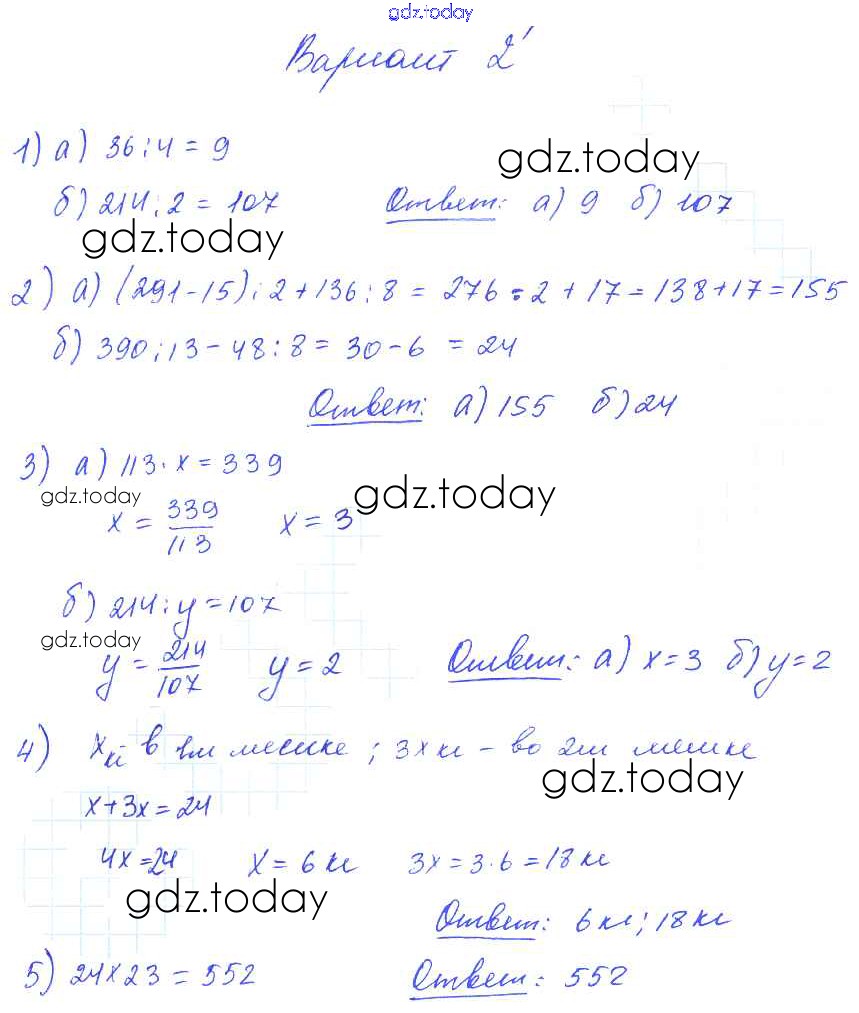 gdz.today
Вариант 2
1) а) 36 : 4 = 9
gdz.today
б) 214 : 2 = 107 Ответ: а) 9 б) 107
gdz.today
2) а) (291-15) : 2 + 136 : 8 = 276 : 2 + 17 = 138 + 17 = 155
б) 390 : 13 - 48 : 8 = 30 - 6 = 24
Ответ: а) 155 б) 24
3) а) 113 · x = 339
gdz.today gdz.today
x = 339/113 x = 3
б) 214 : y = 107
gdz.today
y = 214/107 y = 2 Ответ: а) x = 3 б) y = 2
4) x кг в 1м мешке ; 3x кг - во 2м мешке
gdz.today
x + 3x = 24
4x = 24 x = 6 кг 3x = 3 · 6 = 18 кг
gdz.today
Ответ: 6 кг ; 18 кг
5) 24 x 23 = 552 Ответ: 552